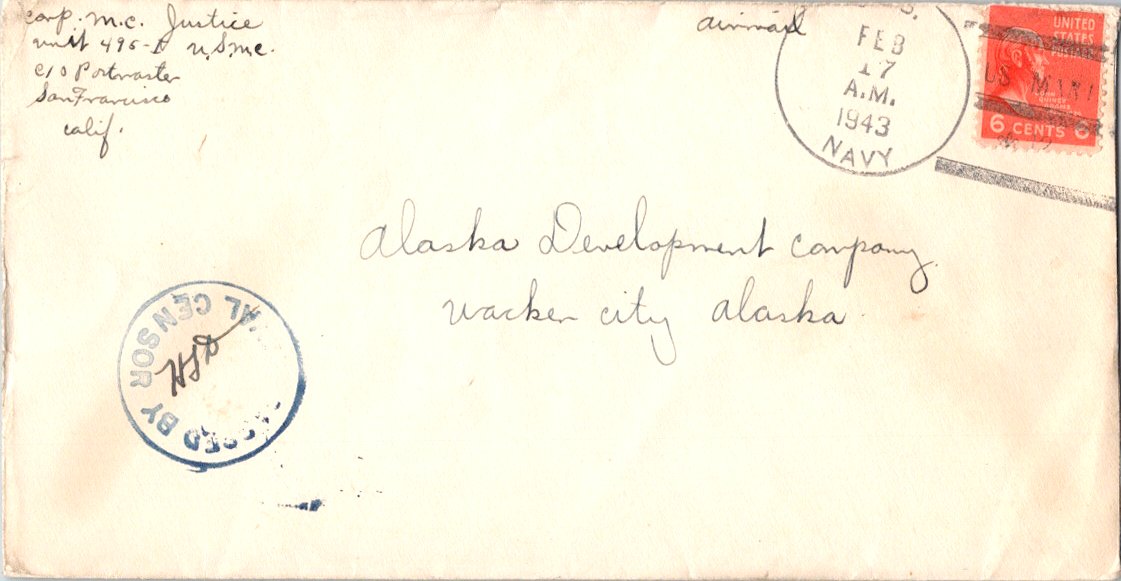 Corp. M.C. Justice
Unit 495-D U.S.M.C.
c/o Postmaster
San Francisco
Calif.
airmail
S.
FEB
17
A.M.
1943
NAVY
UNITED
STATES
US MARI
JOHN
QUINCY
ADAMS
6 CENTS 6
Alaska Development Company
Wacker City Alaska
PASSED BY NAVAL CENSOR